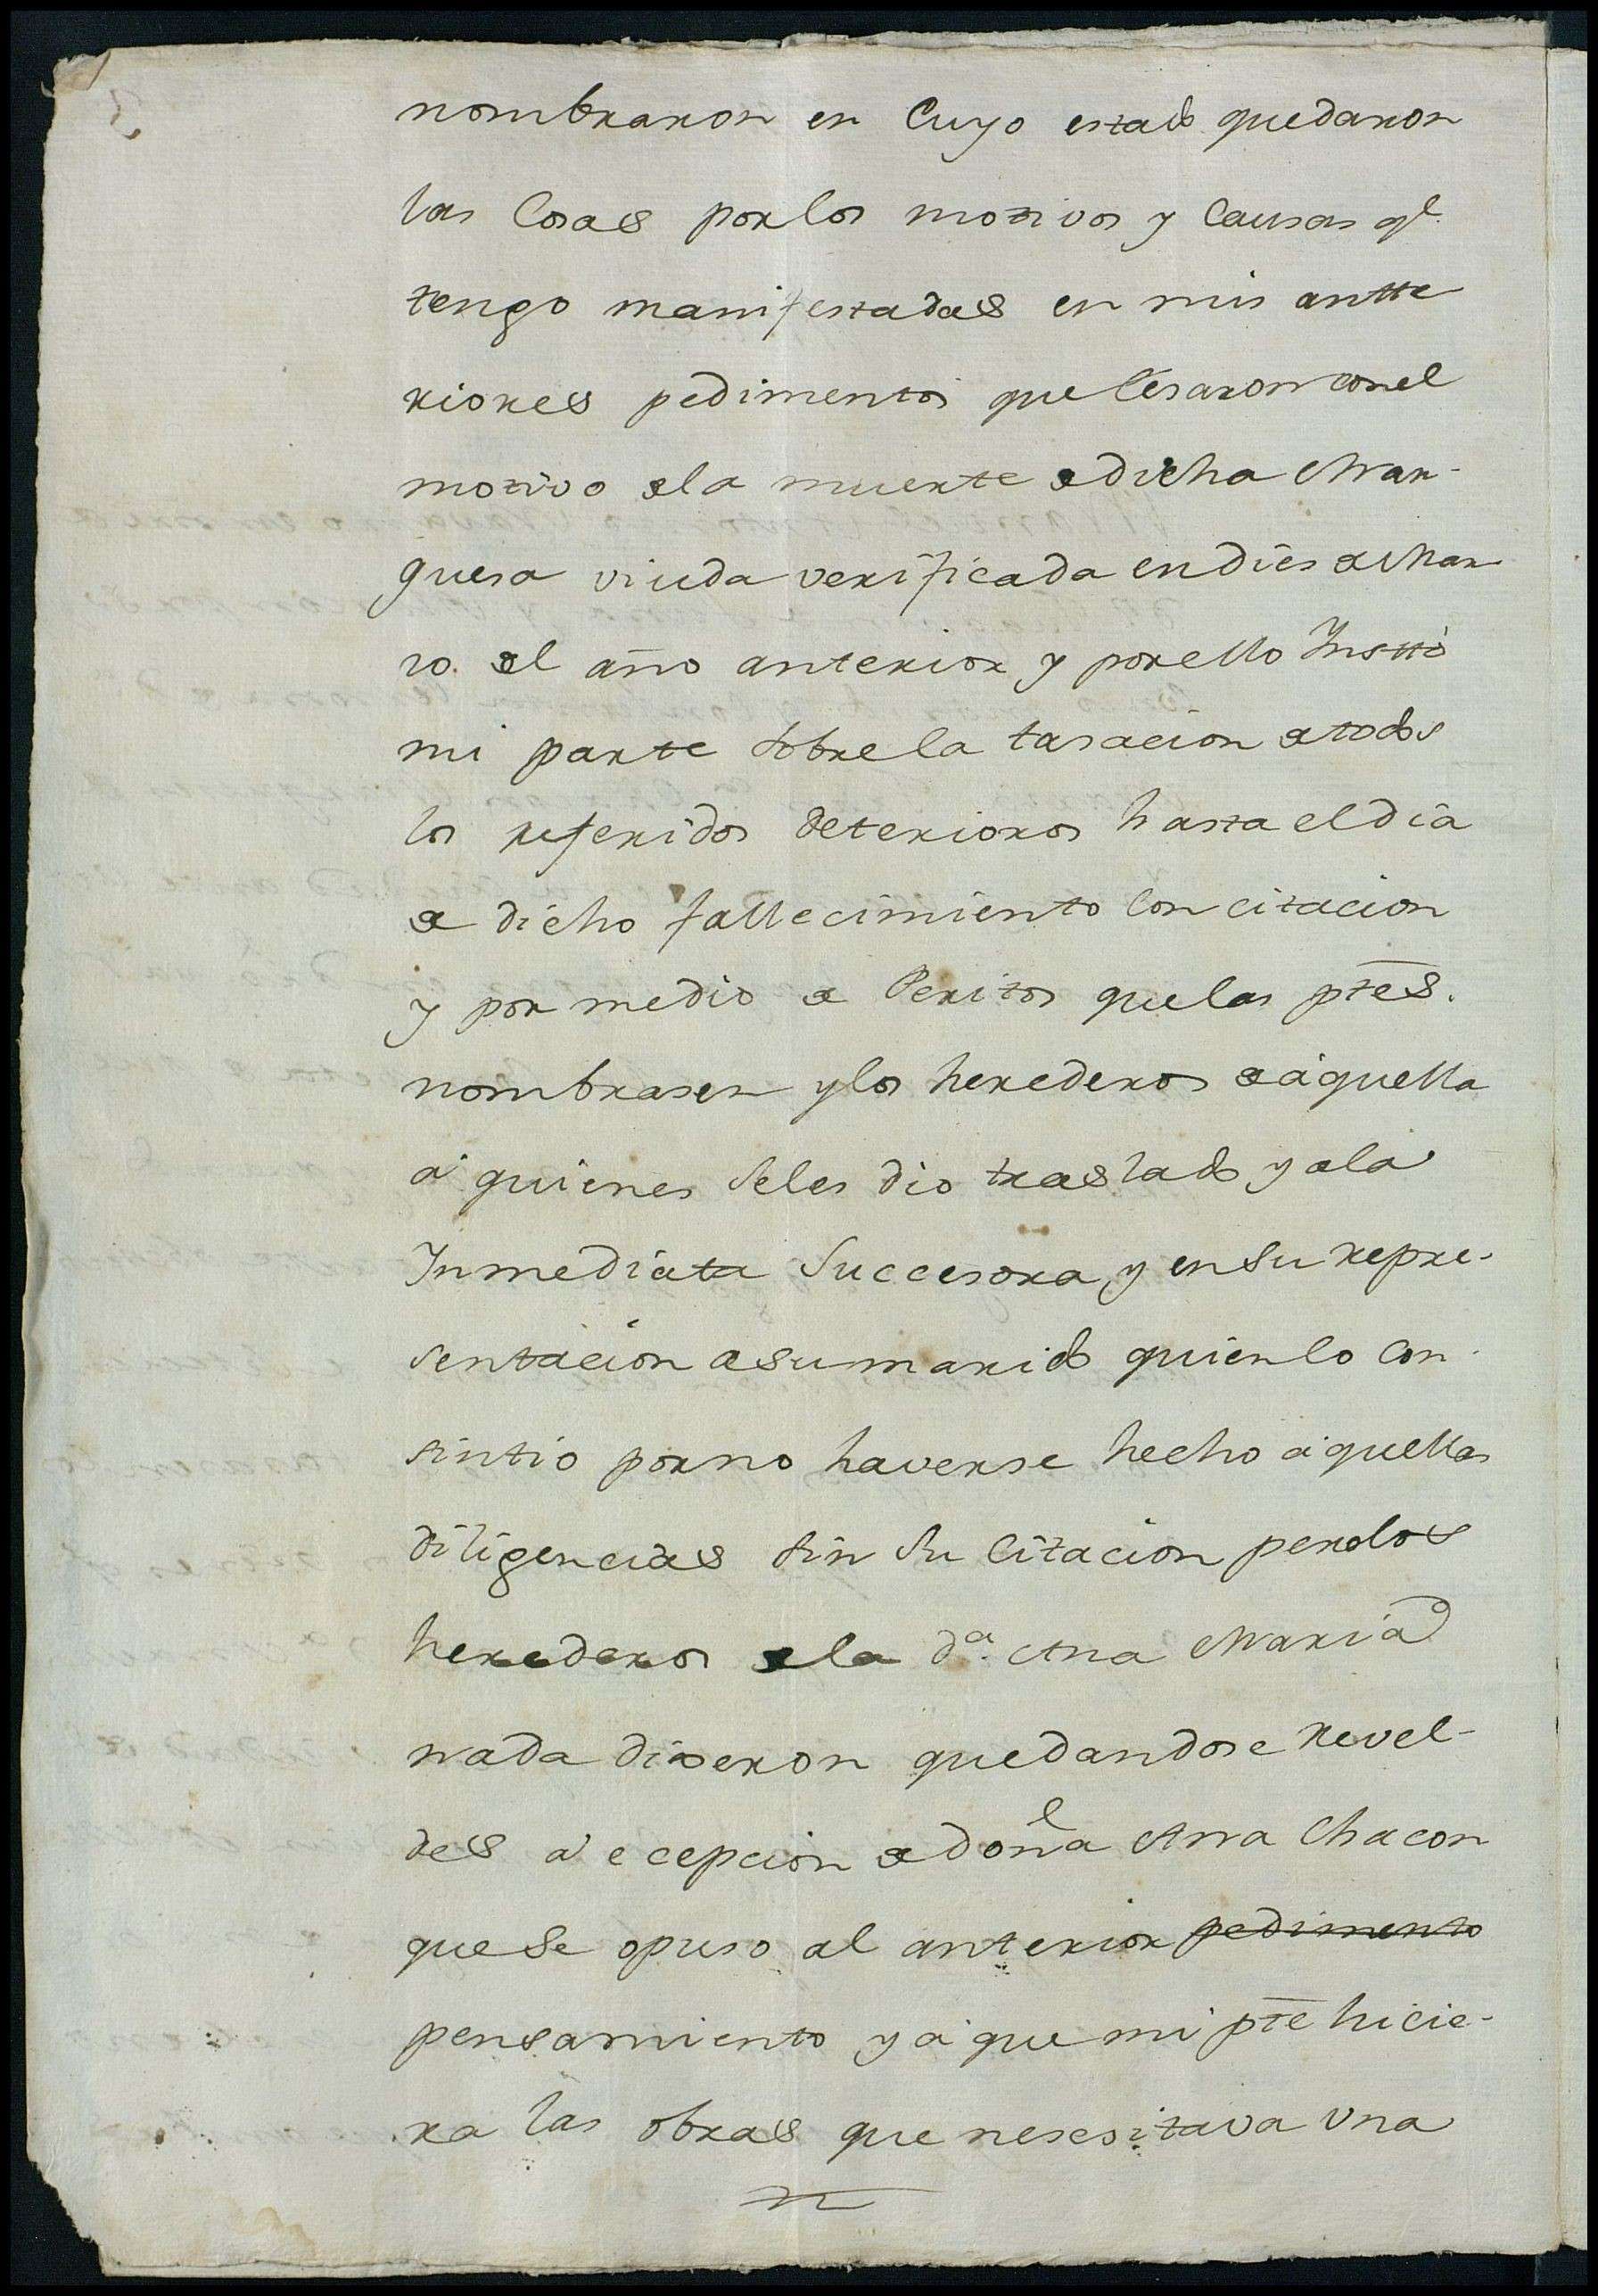 nombraron en Cuyo estado quedaron
las Cosas por los motivos y Causas qe.
tengo manifestadas en mis antte
riores pedimentos que Cesaron con el
motivo de la muerte de dicha Mar-
quesa viuda verificada en dies de Mar
zo. del año anterior y por ello Insttó
mi parte sobre la tasacion de todos
los referidos deterioros hasta el dia
de dicho fallecimiento Con citacion
y por medio de Peritos que las ptes.
nombrasen y los herederos de aquella
a quienes seles dio traslado y ala
Inmediata Succesora, y en su repre-
sentacion a su marido quien lo con-
sintio por no haverse hecho aquellas
diligencias sin su Citacion pero los
herederos de la da. Ana Maria
nada dixeron quedandose revel-
des a ecepcion de doña Ana Chacon
que se opuso al anterior pedimento
pensamiento y a que mi pte hicie-
ra las obras que nesesitava una